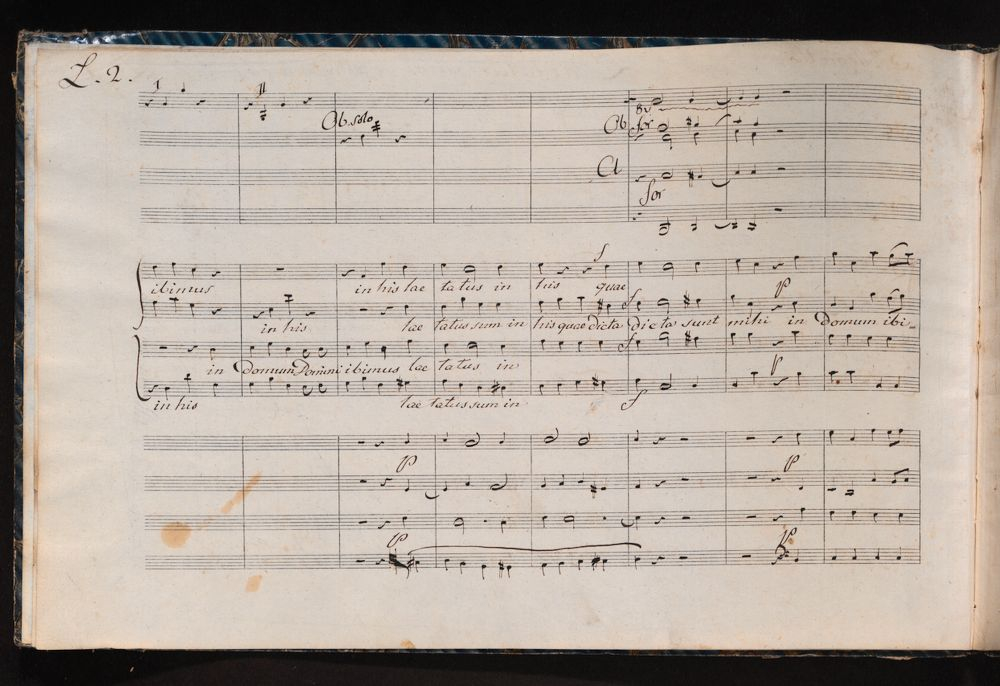 L. 2.
I II
Ob. solo
8v
Ob for
Cl
for
f
ibimus in his lae tatus in his quae
f p
in his lae tatus sum in his quae dicta dicta sunt mihi in domum ibi-
f
in domum Domini ibimus lae tatus in
p
in his lae tatus sum in f
p p
p p